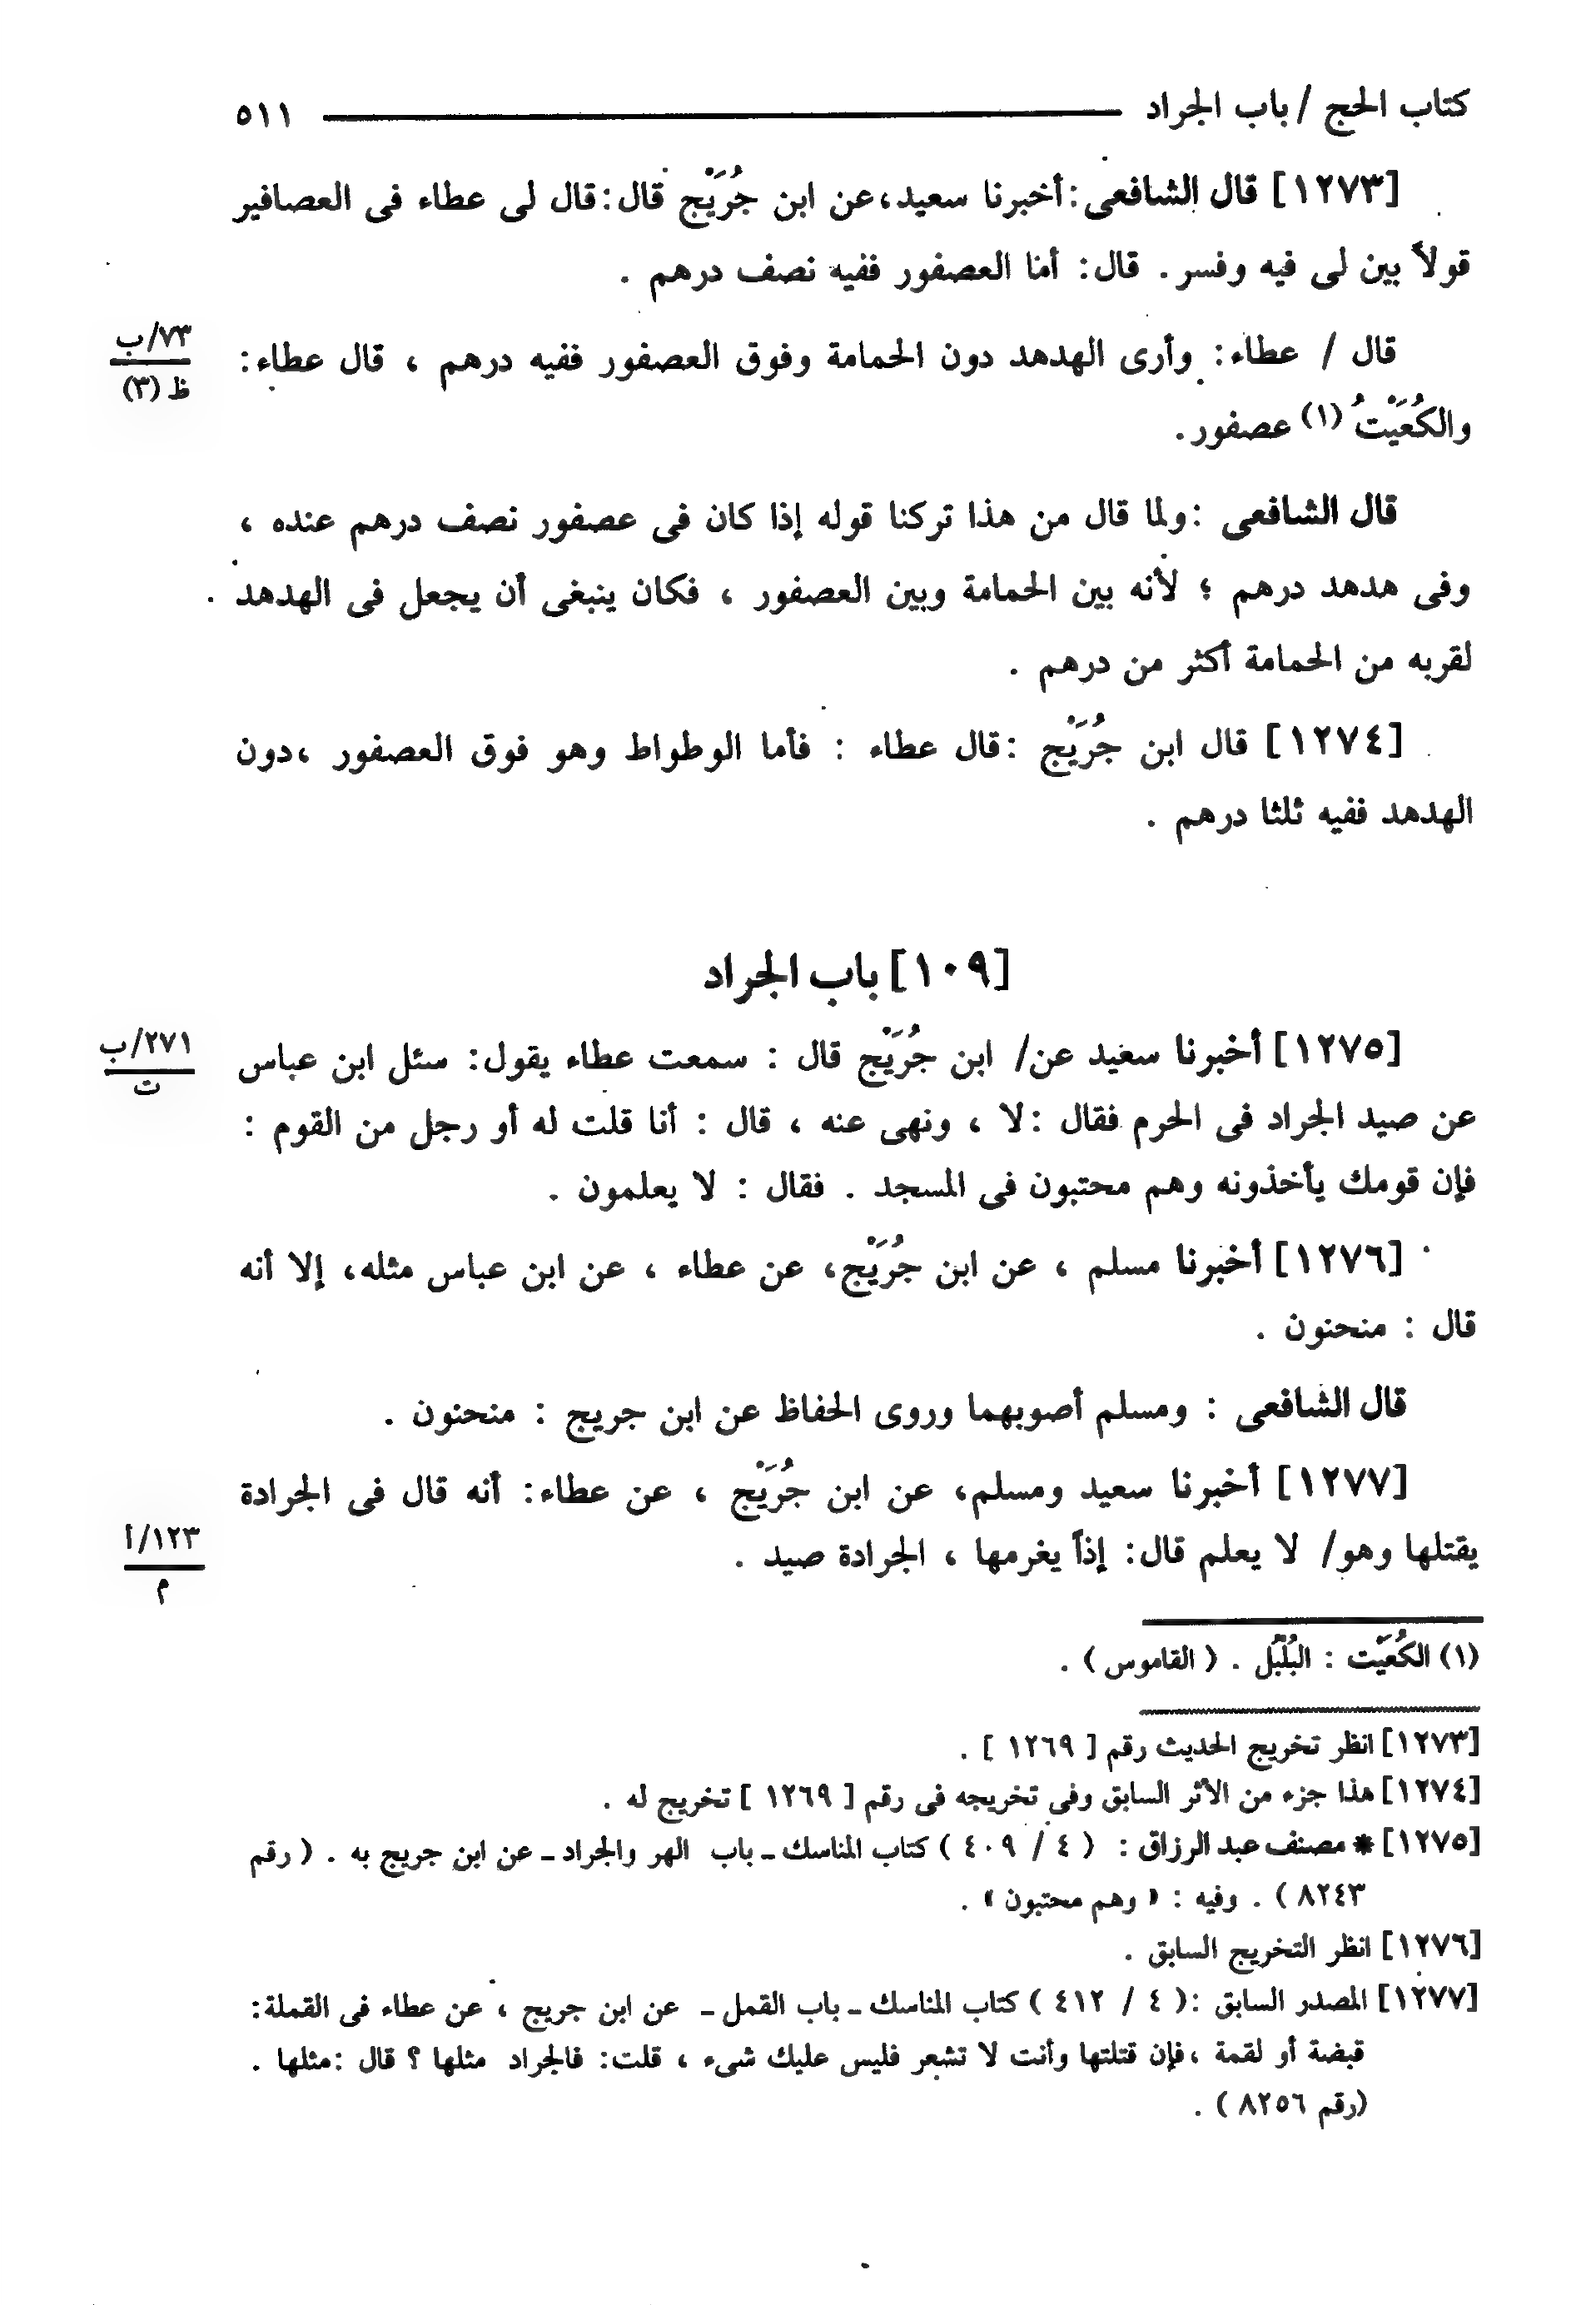 كتاب الحج / باب الجراد ٥١١
[١٢٧٣] قال الشافعى: أخبرنا سعيد، عن ابن جُرَيْج قال: قال لى عطاء فى العصافير
قولاً بين لى فيه وفسر. قال: أما العصفور ففيه نصف درهم .
قال / عطاء: وأرى الهدهد دون الحمامة وفوق العصفور ففيه درهم ، قال عطاء:
٧٣/ب
ظ (٣)
والكُعَيْتُ (١) عصفور.
قال الشافعى : ولما قال من هذا تركنا قوله إذا كان فى عصفور نصف درهم عنده ،
وفى هدهد درهم ؛ لأنه بين الحمامة وبين العصفور ، فكان ينبغى أن يجعل فى الهدهد
لقربه من الحمامة أكثر من درهم .
[١٢٧٤] قال ابن جُرَيْج : قال عطاء : فأما الوطواط وهو فوق العصفور ، دون
الهدهد ففيه ثلثا درهم .
[١٠٩] باب الجراد
[١٢٧٥] أخبرنا سعيد عن/ ابن جُرَيْج قال : سمعت عطاء يقول: سئل ابن عباس
٢٧١/ب
ت
عن صيد الجراد فى الحرم فقال : لا ، ونهى عنه ، قال : أنا قلت له أو رجل من القوم :
فإن قومك يأخذونه وهم محتبون فى المسجد . فقال : لا يعلمون .
[١٢٧٦] أخبرنا مسلم ، عن ابن جُرَيْج، عن عطاء ، عن ابن عباس مثله، إلا أنه
قال : منحنون .
قال الشافعى : ومسلم أصوبهما وروى الحفاظ عن ابن جريج : منحنون .
[١٢٧٧] أخبرنا سعيد ومسلم، عن ابن جُرَيْج ، عن عطاء: أنه قال فى الجرادة
يقتلها وهو/ لا يعلم قال: إذاً يغرمها ، الجرادة صيد .
١٢٣/أ
م
(١) الكُعَيْت : البُلْبُل . ( القاموس ) .
[١٢٧٣] انظر تخريج الحديث رقم [ ١٢٦٩ ] .
[١٢٧٤] هذا جزء من الأثر السابق وفى تخريجه فى رقم [ ١٢٦٩ ] تخريج له .
[١٢٧٥] * مصنف عبد الرزاق : ( ٤ / ٤٠٩ ) كتاب المناسك ـ باب الهر والجراد ـ عن ابن جريج به . ( رقم
٨٢٤٣ ) . وفيه : « وهم محتبون » .
[١٢٧٦] انظر التخريج السابق .
[١٢٧٧] المصدر السابق : ( ٤ / ٤١٢ ) كتاب المناسك ـ باب القمل ـ عن ابن جريج ، عن عطاء فى القملة:
قبضة أو لقمة ، فإن قتلتها وأنت لا تشعر فليس عليك شىء ، قلت: فالجراد مثلها ؟ قال : مثلها .
(رقم ٨٢٥٦ ) .